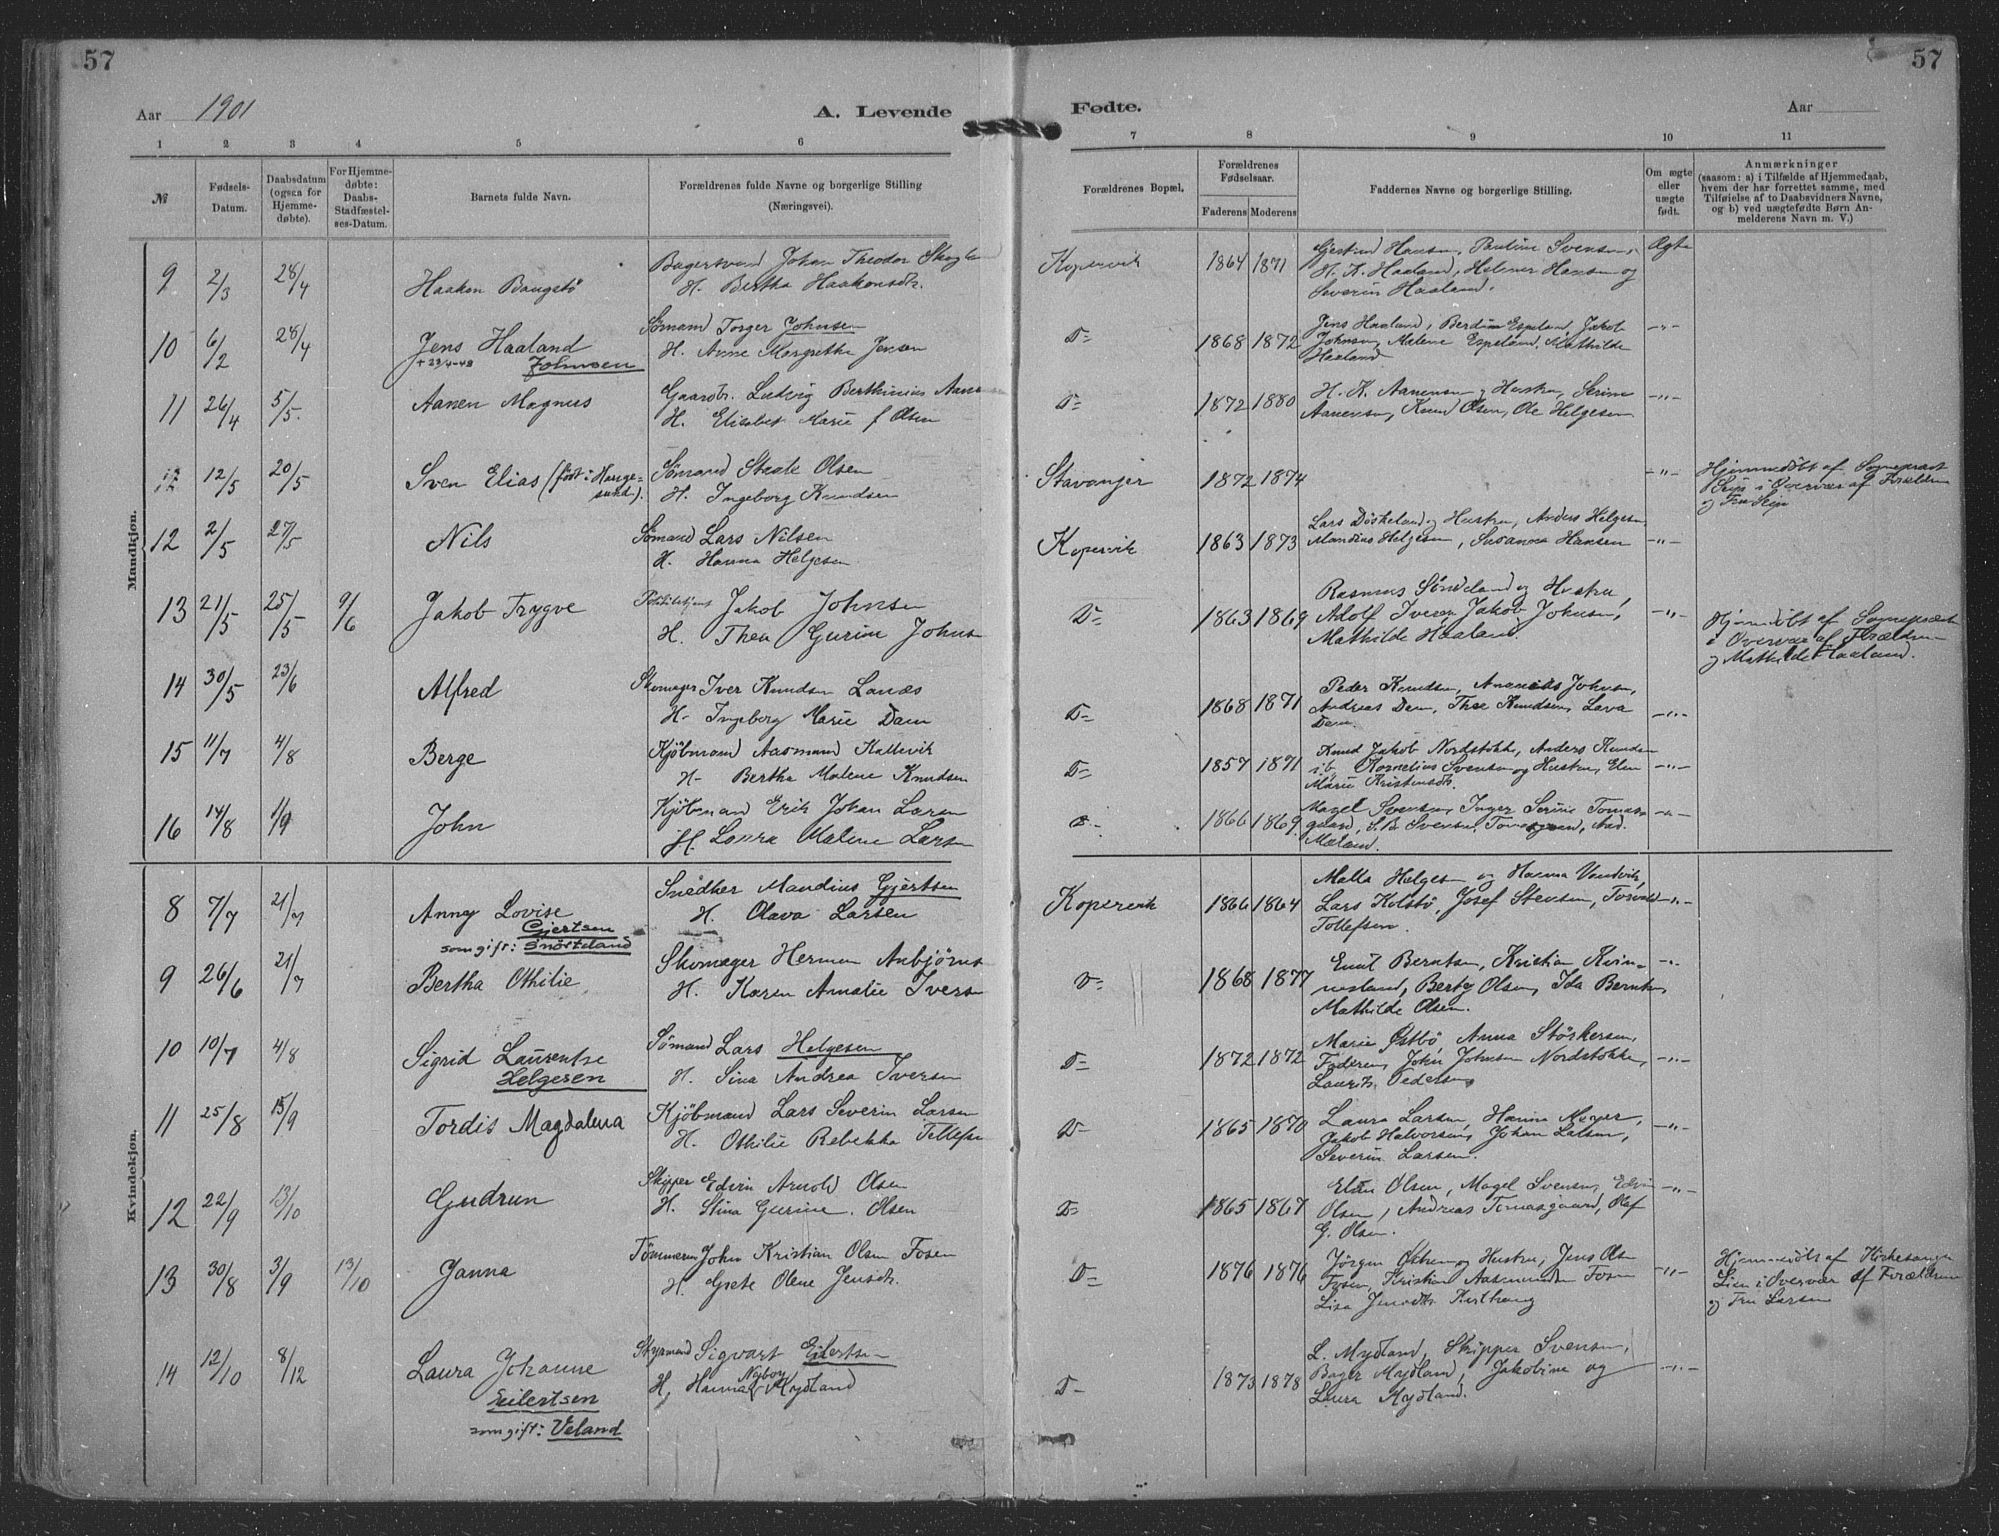 57
57
Aar 1901
A. Levende
Fødte.
Aar
1 2 3 4 5 6 7 8 9 10 11
№
Fødsels-
Datum.
Daabsdatum
(ogsaa for
Hjemme-
døbte).
For Hjemme-
døbte:
Daabs-
Stadfæstel-
ses-Datum.
Barnets fulde Navn.
Forældrenes fulde Navne og borgerlige Stilling
(Næringsvei).
Forældrenes Bopæl.
Forældrenes
Fødselsaar.
Faderens
Moderens
Faddernes Navne og borgerlige Stilling.
Om ægte
eller
uægte
født.
Anmærkninger
(saasom: a) i Tilfælde af Hjemmedaab,
hvem der har forrettet samme, med
Tilføielse af to Daabsvidners Navne,
og b) ved uægtefødte Børn An-
melderens Navn m. V.)
Mandkjøn.
9 2/3 28/4 Haakon
Johan Theodor
H. Bertha Haakonsdtr.
Kopervik 1864 1871
Hansen, Pauline Svensen,
H. K. Haaland, Helener Hansen og
Severin Haaland.
Ægte
10 6/2 28/4 Jens Haaland
+23/4-48 Johnsen
Sømand Torger Johnsen
H. Anne Margrethe Jensen
D= 1868 1872
Jens Haaland, Berdine Espeland, Jakob
Johnsen, Malene Espeland, Mathilde
Haaland
-"-
11 26/4 5/5. Aanen Magnus
Gaardbr. Ludvig Berthinius
H. Elisabet Marie f Olsen
D= 1872 1880
H. K. Aanensen og Hustru, Serine
Aanensen, Knud Olsen, Ole Helgesen
-"-
12 12/5 20/5 Sven Elias (født i Hauge-
sund).
Sømand Olsen
H. Ingeborg Knudsen
Stavanger 1872 1874
-"-
Hjemmedøbt af Sogneprest
Seip i Overvær af Forældrene
og Fru Seip
12 2/5 27/5 Nils
Sømand Lars Nilsen
H. Hanna Helgesen
Kopervik 1863 1873
Lars Døskeland og Hustru, Anders Helgesen,
Mandius Helgesen, Susanna Hansen
-"-
13 21/5 25/5 9/6 Jakob Trygve
Jakob Johnsen
H. Thea Gurine Johns
D= 1863 1869
Rasmus Søndeland og Hustru,
Adolf Iversen, Jakob Johnsen,
Mathilde Haaland.
-"-
Hjemmedøbt af Sogneprest
i Overvær af Forældrene
og Mathilde Haaland.
14 30/5 23/6 Alfred
Skomager Iver Knudsen Lanes
H. Ingeborg Marie Dam
D= 1868 1871
Peder Knudsen, Ananias Johnsen,
Andreas Dam, Thea Knudsen, Lava
Dam.
-"-
15 11/7 4/8 Berge
Kjøbmand Aasmund Kallevik
H. Bertha Malene Knudsen
D= 1857 1871
Knud Jakob Nordstokke, Anders Knudsen
Kornelius Svensen og Hustru, Elen
Marie Kristensdtr.
-"-
16 14/8 1/9 John
Kjøbmand Erik Johan Larsen
H. Laura Malene Larsen
D- 1866 1869
Magel Svensen, Inger Serine Tomas-
gaard, S. B. Svensen, Tomasgaard, And.
Mæland.
-"-
Kvindekjøn.
8 7/7 21/7 Anny Lovise
Gjertsen
som gift: Snørteland
Snedker Mandius Gjertsen
H. Olava Larsen
Kopervik 1866 1864
Malla Helgesen og Hanna
Lars Kolstø, Josef Stensen, Torvald
Tollefsen.
-"-
9 26/6 21/7 Bertha Othilie
Skomager Herman Anbjørns
H. Karen Amalie Ivers
D= 1868 1877
Emil Berntsen, Kristian Kvin-
nesland, Berty Olsen, Ida Berntsen,
Mathilde Olsen.
-"-
10 10/7 4/8 Sigrid Laurentse
Helgesen
Sømand Lars Helgesen
H. Sina Andrea Iversen
D= 1872 1872
Marie Østbø, Anna Størkersen,
Faderen, John Johnsen Nordstokke,
Laurits Pedersen
-"-
11 25/8 15/9 Tordis Magdalena
Kjøbmand Lars Severin Larsen
H. Othilie Rebekka Tollefsen
D- 1865 1870
Laura Larsen, Hanna Meyer,
Jakob Halvorsen, Johan Larsen,
Severin Larsen.
-"-
12 22/9 13/10 Gudrun
Skipper Edvin Arnold Olsen
H. Stina Gurine. Olsen
D= 1865 1867
Elen Olsen, Magel Svensen, Edvin
Olsen, Andreas Tomasgaard, Olaf
G. Olsen.
-"-
13 30/8 3/9 13/10 Janna
Tømmerm John Kristian Olsen Fosen
H. Grete Olene Jensdtr.
D= 1876 1876
Jørgen og Hustru, Jens Olsen
Fosen, Kristian Aasmundsen Fosen
Lisa Jensdtr.
-"-
Hjemmedøbt af Kirkesanger
Lien i Overvær af Forældrene
og Fru Larsen
14 12/10 8/12 Laura Johanne
Eilertsen
som gift: Veland
Sigvart Eilertsen
H, Hanna Nyborg Mydland
D- 1873 1878
L. Mydland, Skipper Svensen,
Bager Mydland, Jakobine og
Laura Mydland.
-"-